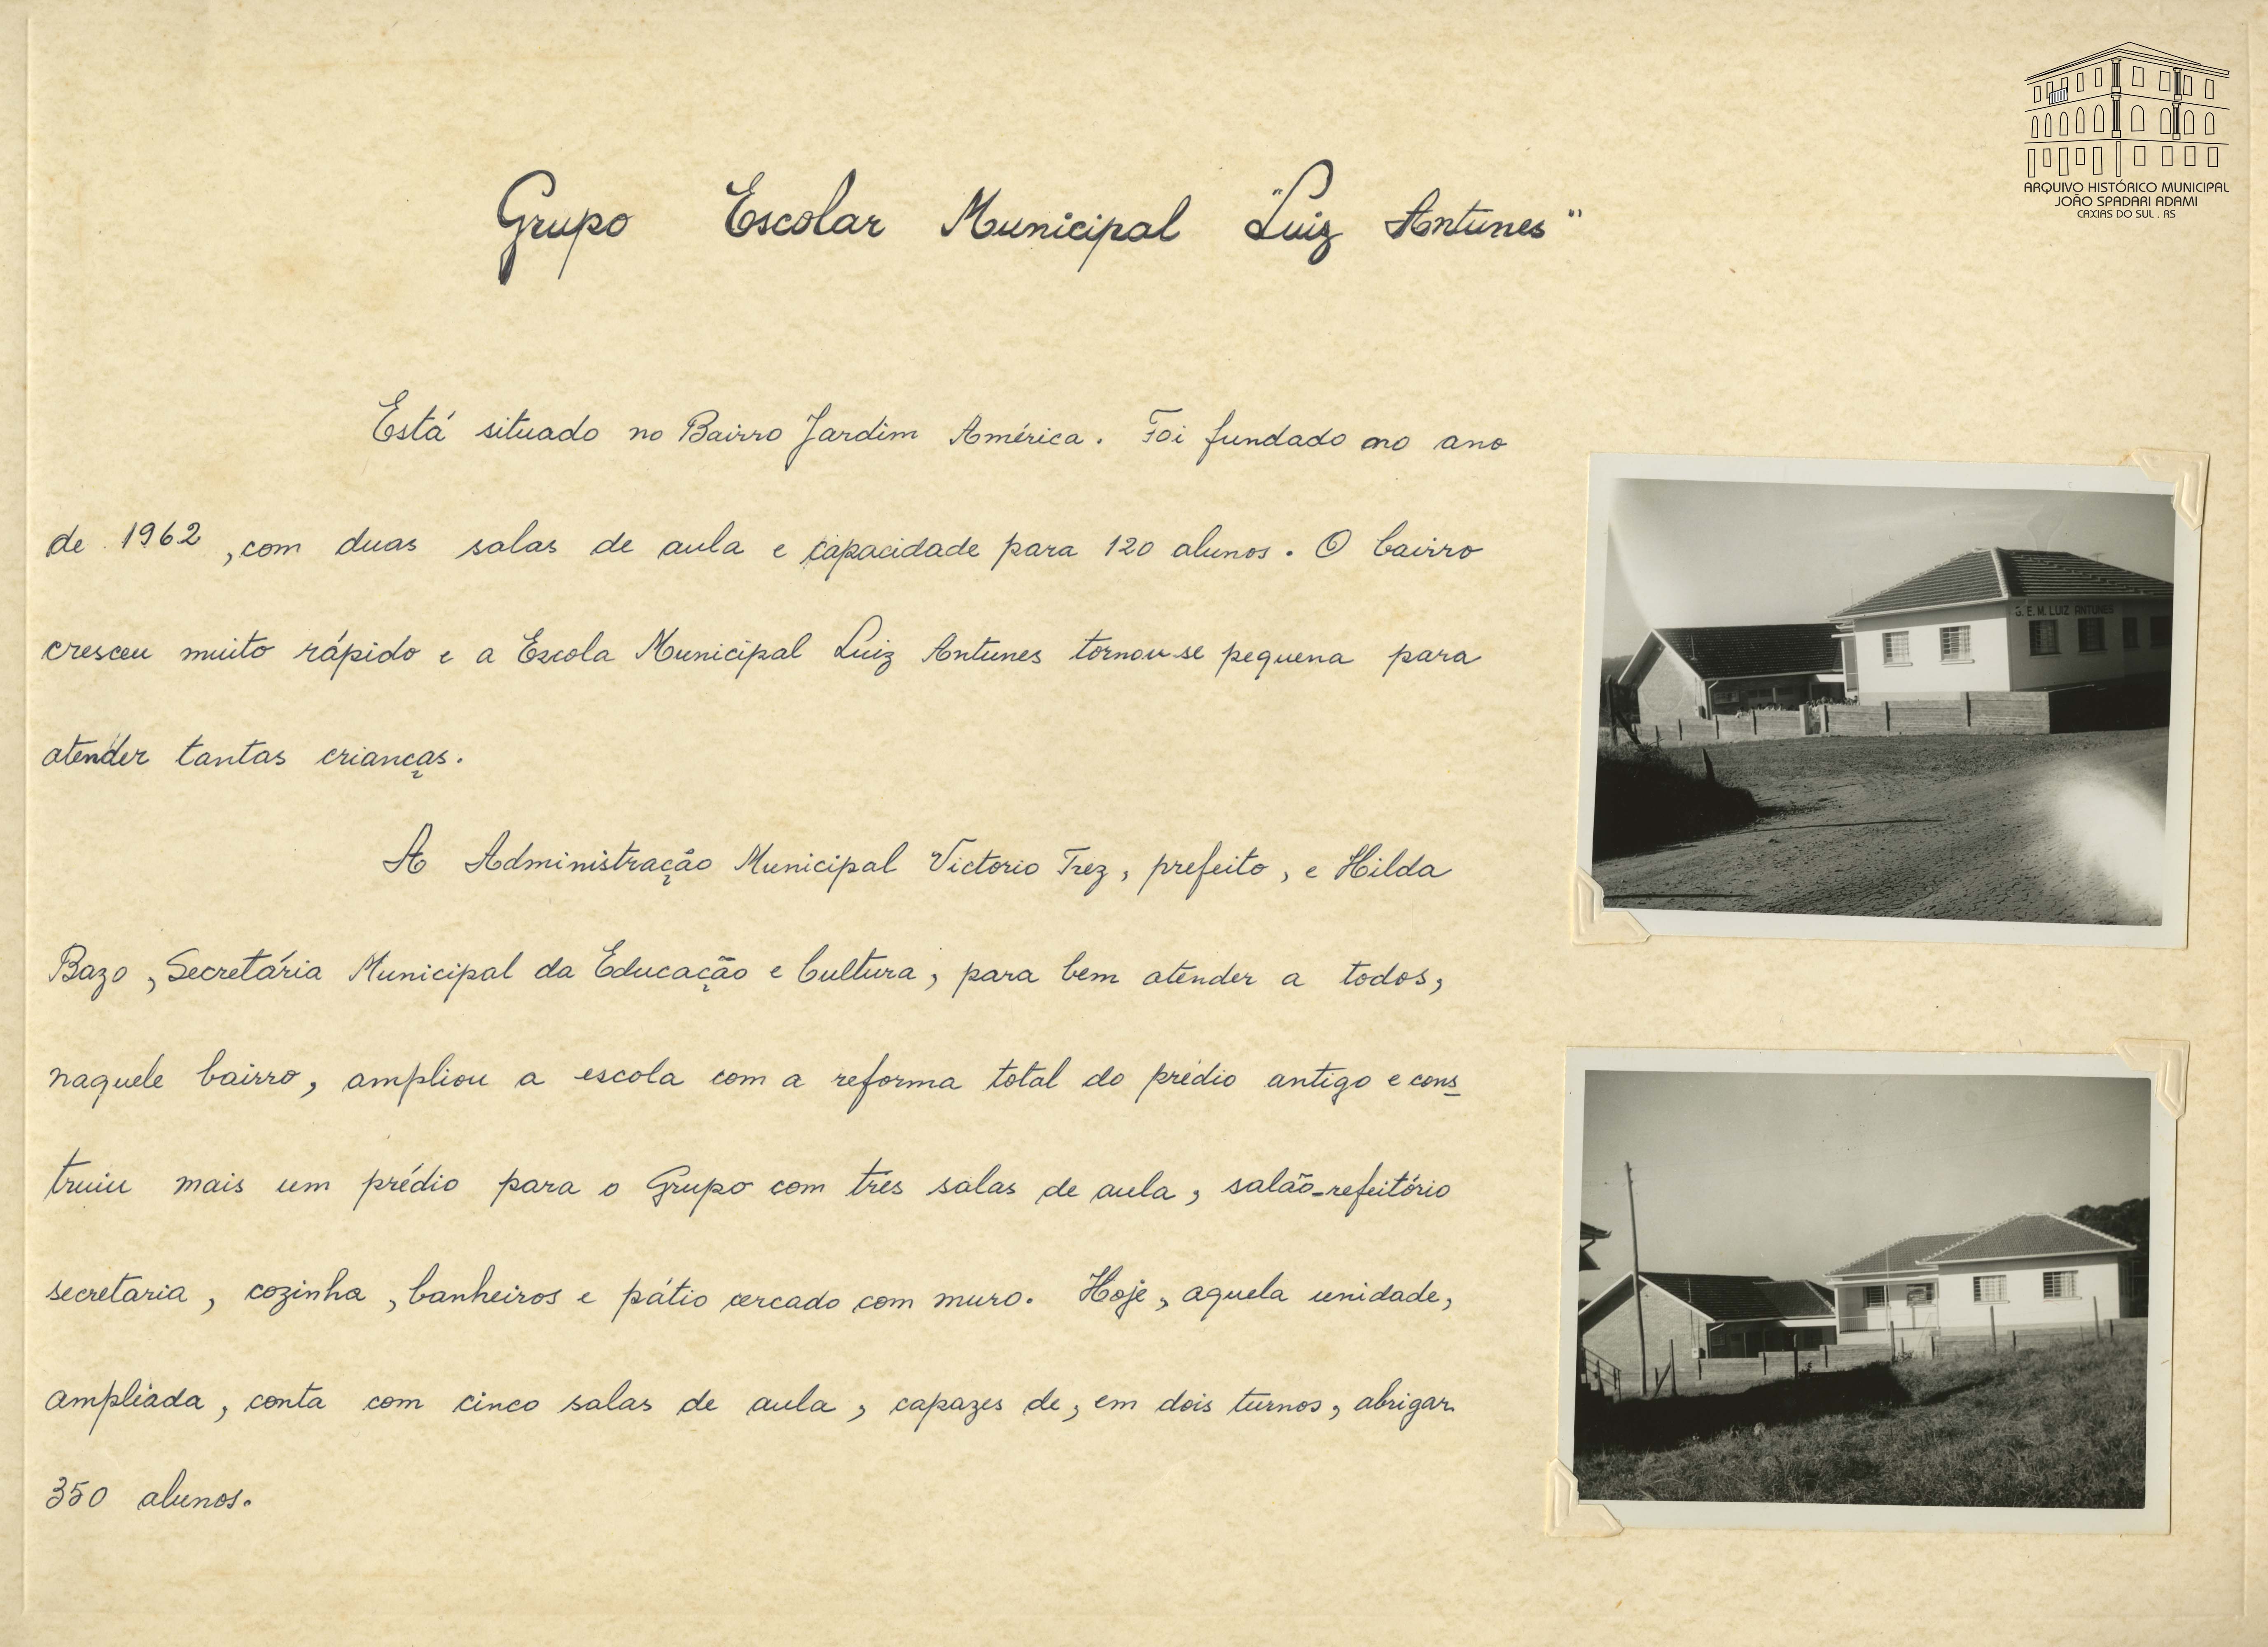 ARQUIVO HISTÓRICO MUNICIPAL
JOÃO SPADARI ADAMI
CAXIAS DO SUL . RS
Grupo Escolar Municipal "Luiz Antunes"
Está situado no Bairro Jardim América. Foi fundado no ano
de 1962, com duas salas de aula e capacidade para 120 alunos. O bairro
cresceu muito rápido e a Escola Municipal Luiz Antunes tornou-se pequena para
atender tantas crianças.
A Administração Municipal Victorio Trez, prefeito, e Hilda
Bazo, Secretária Municipal da Educação e Cultura, para bem atender a todos,
naquele bairro, ampliou a escola com a reforma total do prédio antigo e cons
truiu mais um prédio para o Grupo com três salas de aula, salão-refeitório
secretaria, cozinha, banheiros e pátio cercado com muro. Hoje, aquela unidade,
ampliada, conta com cinco salas de aula, capazes de, em dois turnos, abrigar
350 alunos.
G. E. M. LUIZ ANTUNES